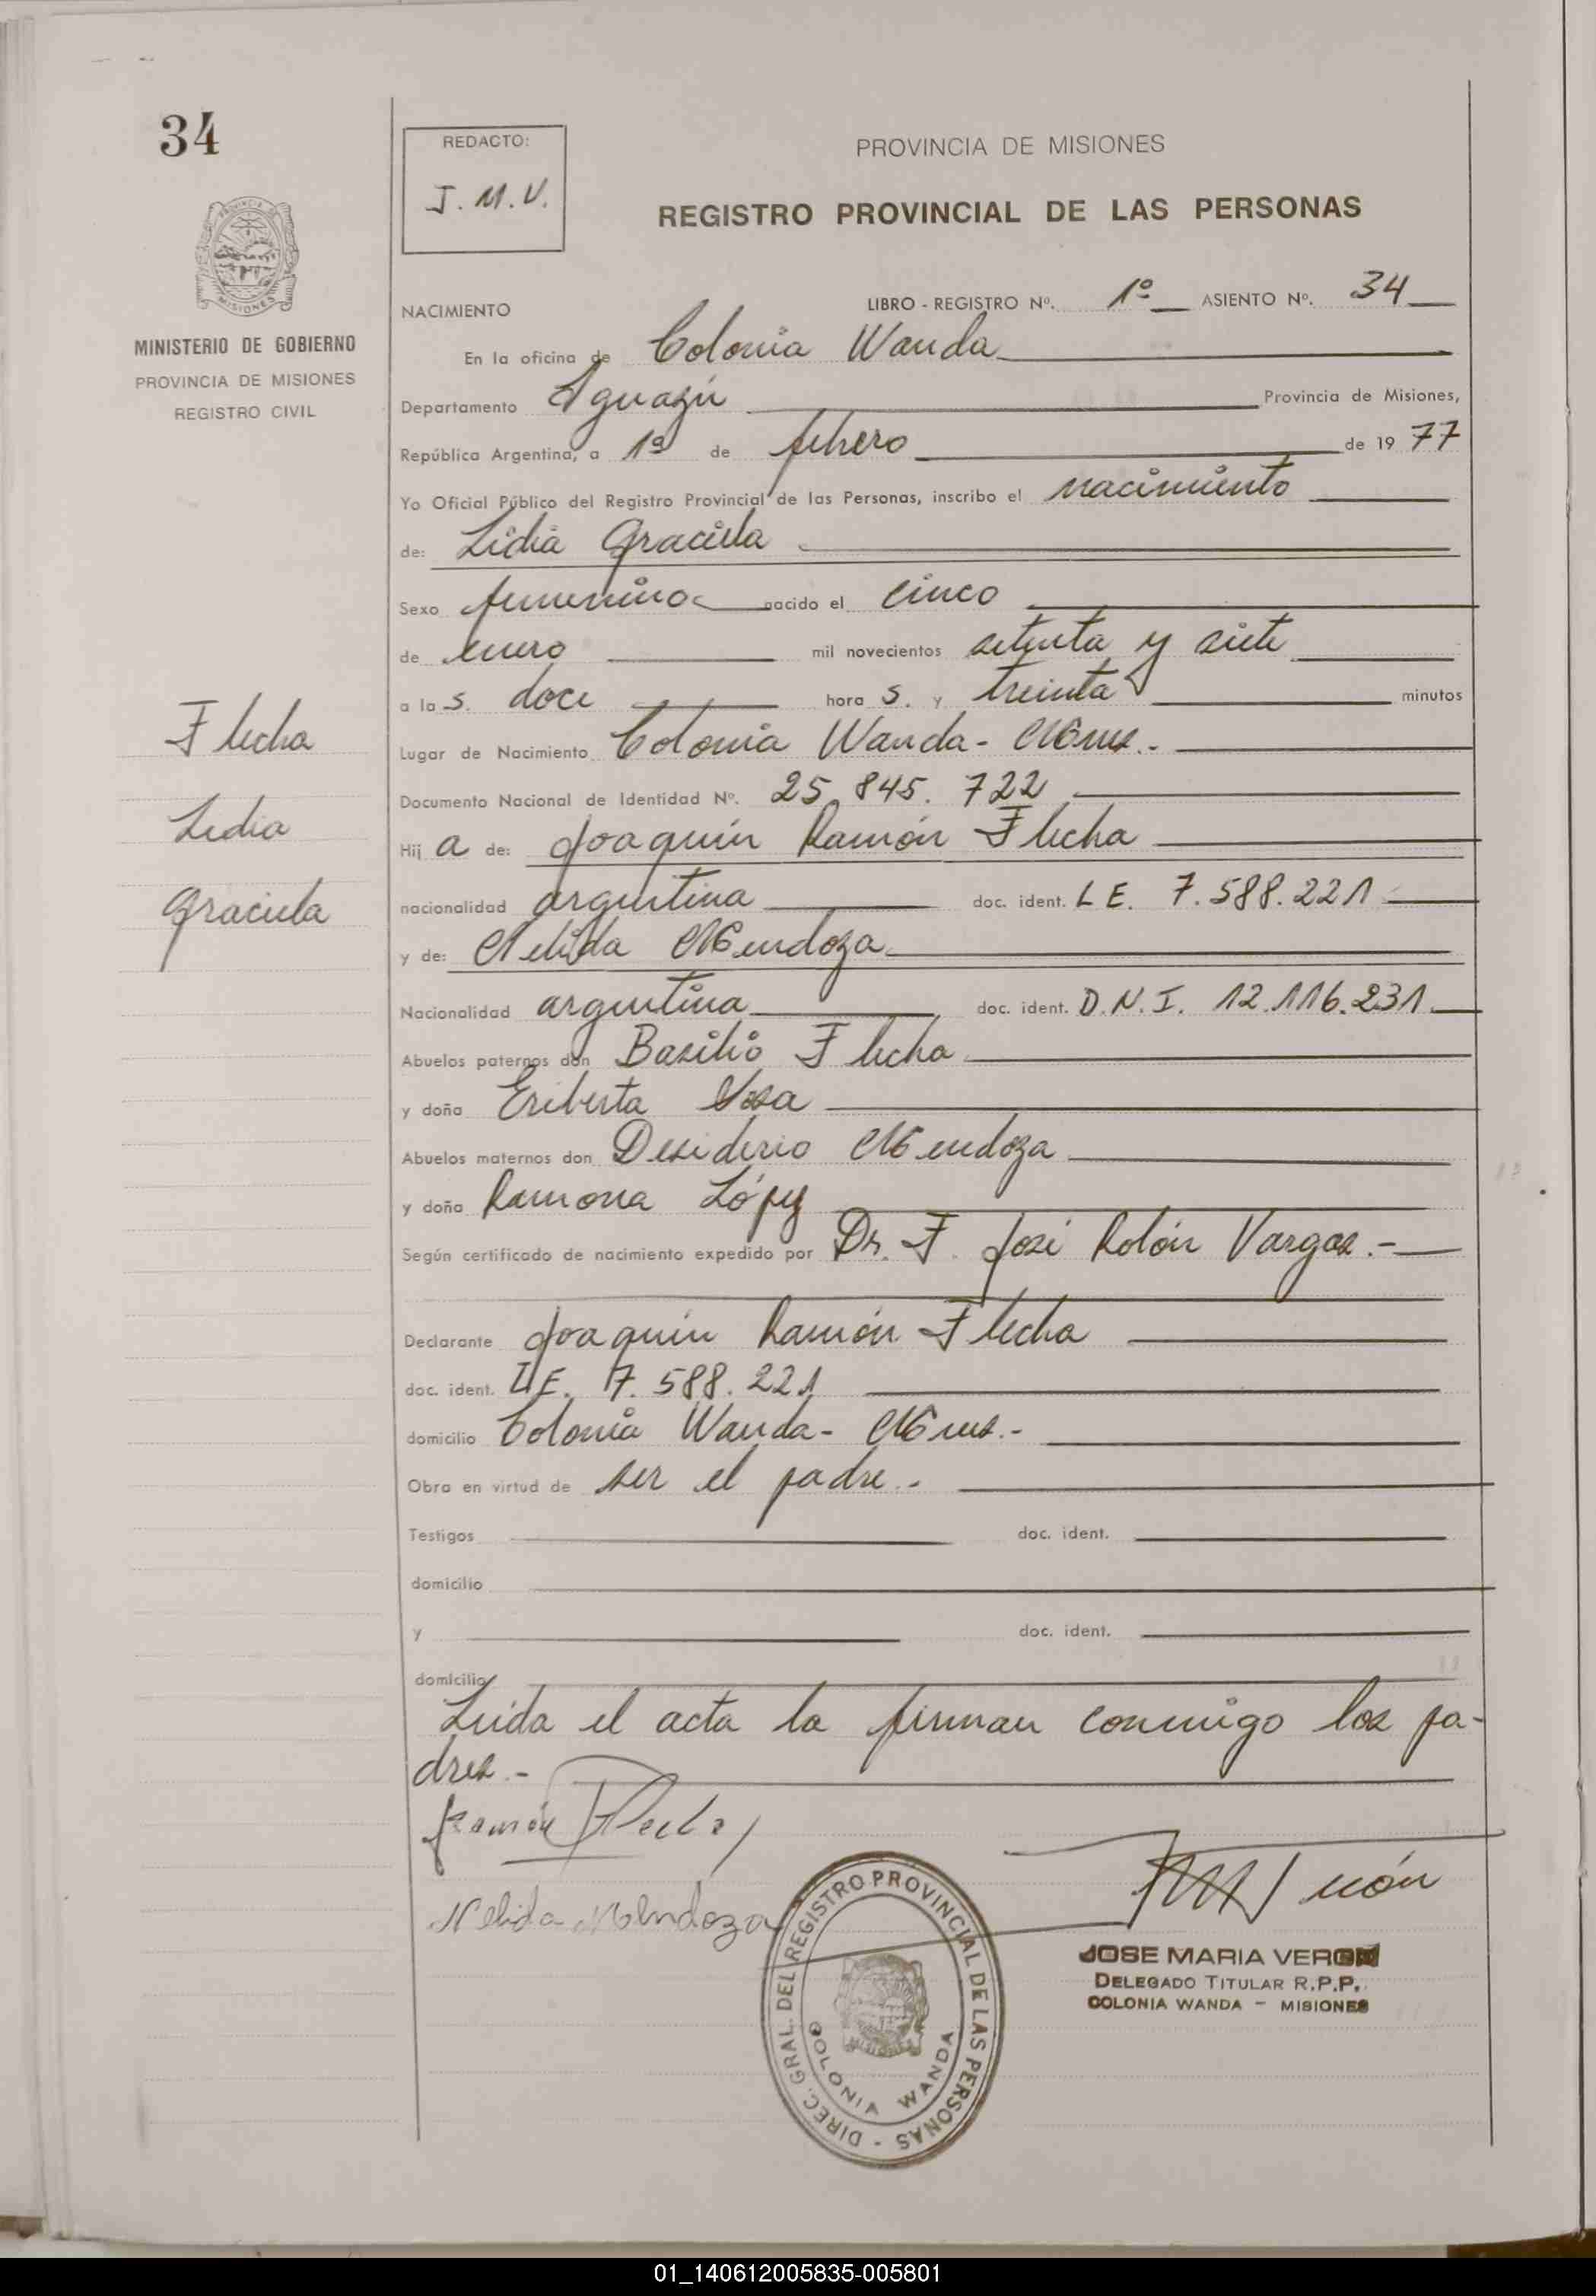 34
REDACTO:
J. M. V.
PROVINCIA DE MISIONES
REGISTRO PROVINCIAL DE LAS PERSONAS
PROVINCIA DE
MISIONES
MINISTERIO DE GOBIERNO
PROVINCIA DE MISIONES
REGISTRO CIVIL
NACIMIENTO LIBRO - REGISTRO Nº. 1º ASIENTO Nº. 34
En la oficina de Colonia Wanda
Departamento Iguazú Provincia de Misiones,
República Argentina, a 1º de febrero de 19 77
Yo Oficial Público del Registro Provincial de las Personas, inscribo el nacimiento
de: Lidia Graciela
Sexo femenino nacido el cinco
de enero mil novecientos setenta y siete
a la s. doce hora s. y treinta minutos
Lugar de Nacimiento Colonia Wanda - Mnes.-
Documento Nacional de Identidad Nº. 25.845.722
Hij a de: Joaquín Ramón Flecha
nacionalidad argentina doc. ident. L E. 7.588.221
y de: Nelida Mendoza
Nacionalidad argentina doc. ident. D.N.I. 12.116.231
Abuelos paternos don Basilio Flecha
y doña Eriberta Sosa
Abuelos maternos don Desiderio Mendoza
y doña Ramona López
Según certificado de nacimiento expedido por Dr. F. José Rolón Vargas.-
Declarante Joaquín Ramón Flecha
doc. ident. L.E. 7.588.221
domicilio Colonia Wanda - Mnes.-
Obra en virtud de ser el padre.-
Testigos doc. ident.
domicilio
y doc. ident.
domicilio
Leida el acta la firman conmigo los pa-
dres.-
Flecha
Lidia
Graciela
Ramón Flecha
Nelida Mendoza
DIREC. GRAL. DEL REGISTRO PROVINCIAL DE LAS PERSONAS -
MISIONES
COLONIA WANDA
JOSE MARIA VERON
DELEGADO TITULAR R.P.P.
COLONIA WANDA - MISIONES
01_140612005835-005801